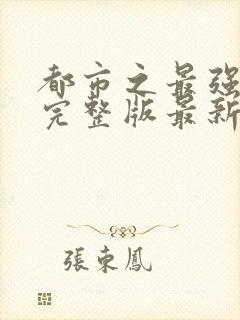 都市之最强
完整版最新
張東鳳